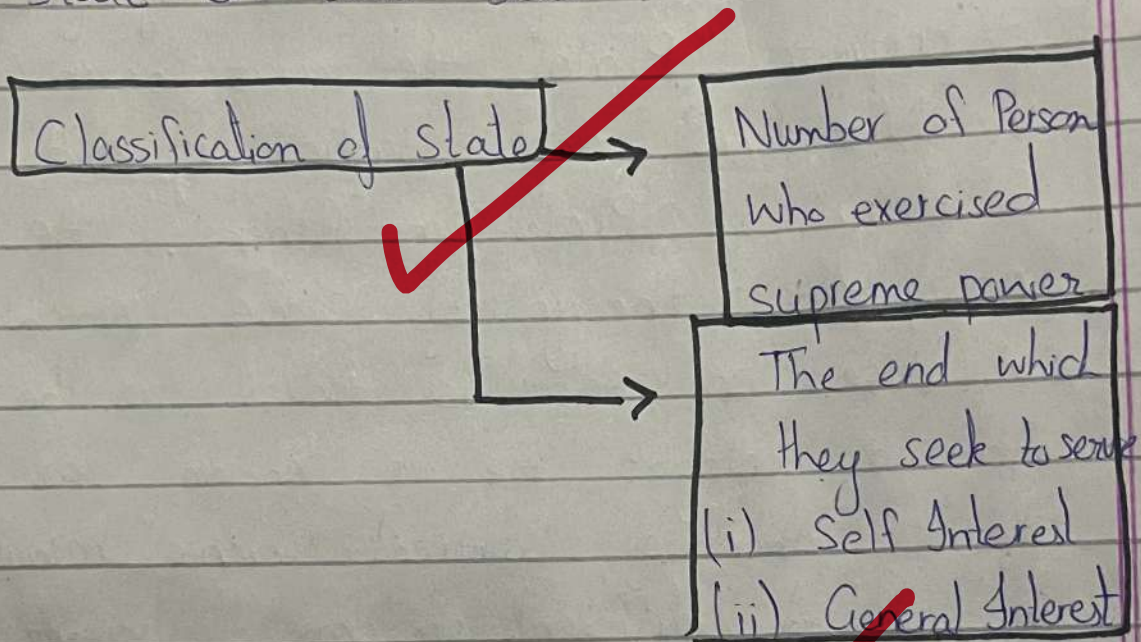 Classification of State
Number of Person
who exercised
supreme power
The end which
they seek to serve
(i) Self Interest
(ii) General Interest